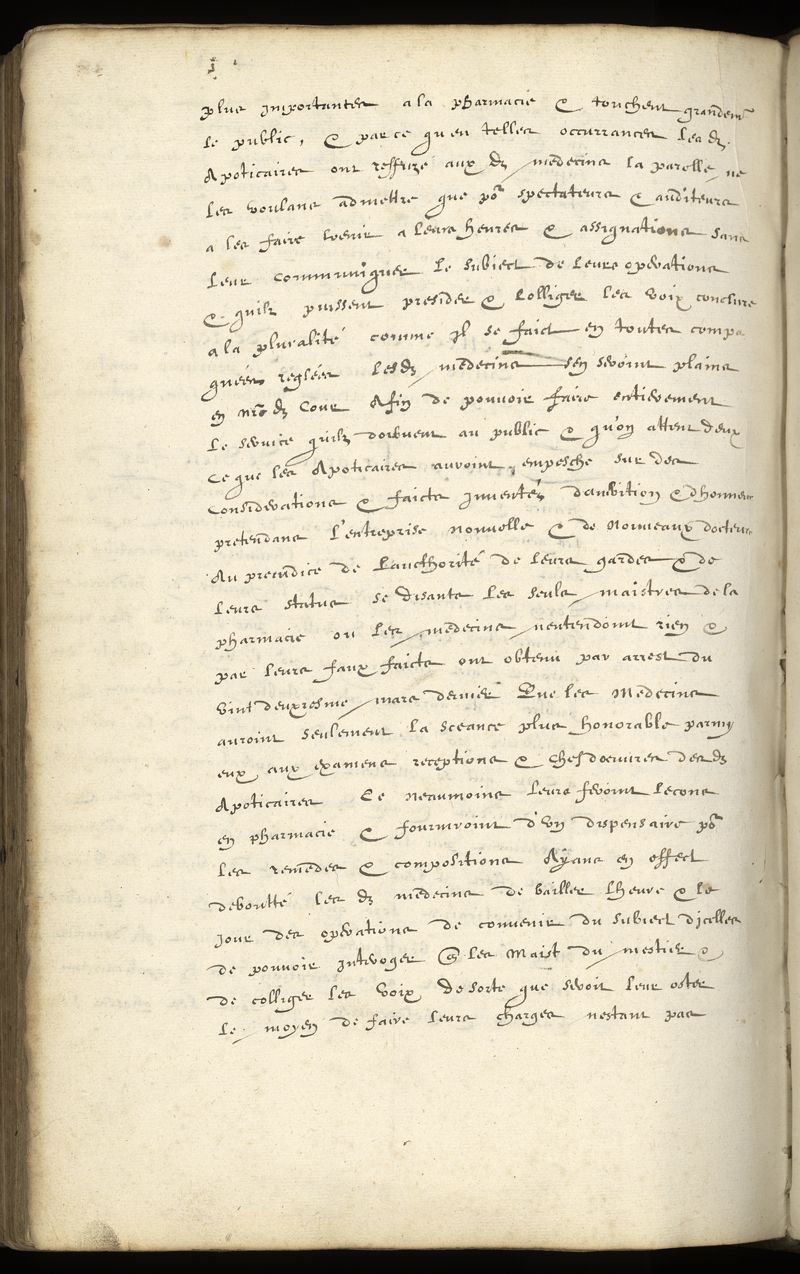 plus importantes a la pharmacie & touchent grandemt
le public, & par ce qu en telles occurrances lesd.
Apoticaires ont reffuzé aux d medecins la parolle ne
les voulans admettre que pr spectateurs & auditeurs
a les faire venir a leurs heures & assignations sans
leur communiquer le subiect de leurs operations
& quilz puissent presider & colliger les voix conclure
a la pluralité comme il se faict en toutes compa
gnées reglées lesd medecins sen seroint plains
en nred Cour Afin de pouvoir faire entierement
le service quilz doibvent au public & qu'on attend deux
Ce que les Apoticaires auroint empesche sur des
Considerations & faicts inventés d'ambition & dhonneur
pretendans l'entreprise nouvelle & de nouveaux docteurs
Au preiudice de l'aucthorité de leurs gardes & de
leurs status se disants les seuls maistres de la
pharmacie ou les medecins nentendoint rien &
par leurs faux faicts ont obtenu par arrest du
vint deuxresme mars dernier Que les Medecins
auroint seulement la sceance plus honorable parmy
eux aux examens receptions & chefdoeuvres desd
Apoticaires Ce neaumoins leurs feroint lecons
en pharmacie & fourniroint d'un dispensaire pr
les remedes & compositions Ayans en effect
deboutté les d medecins de bailler lheure & le
jour des operations de convenir du subiect dicelles
de pouvoir interoger les Maist du mestier &
de colliger les voix De sorte que seroit leur oster
le moyen de faire leurs charges nestant pas